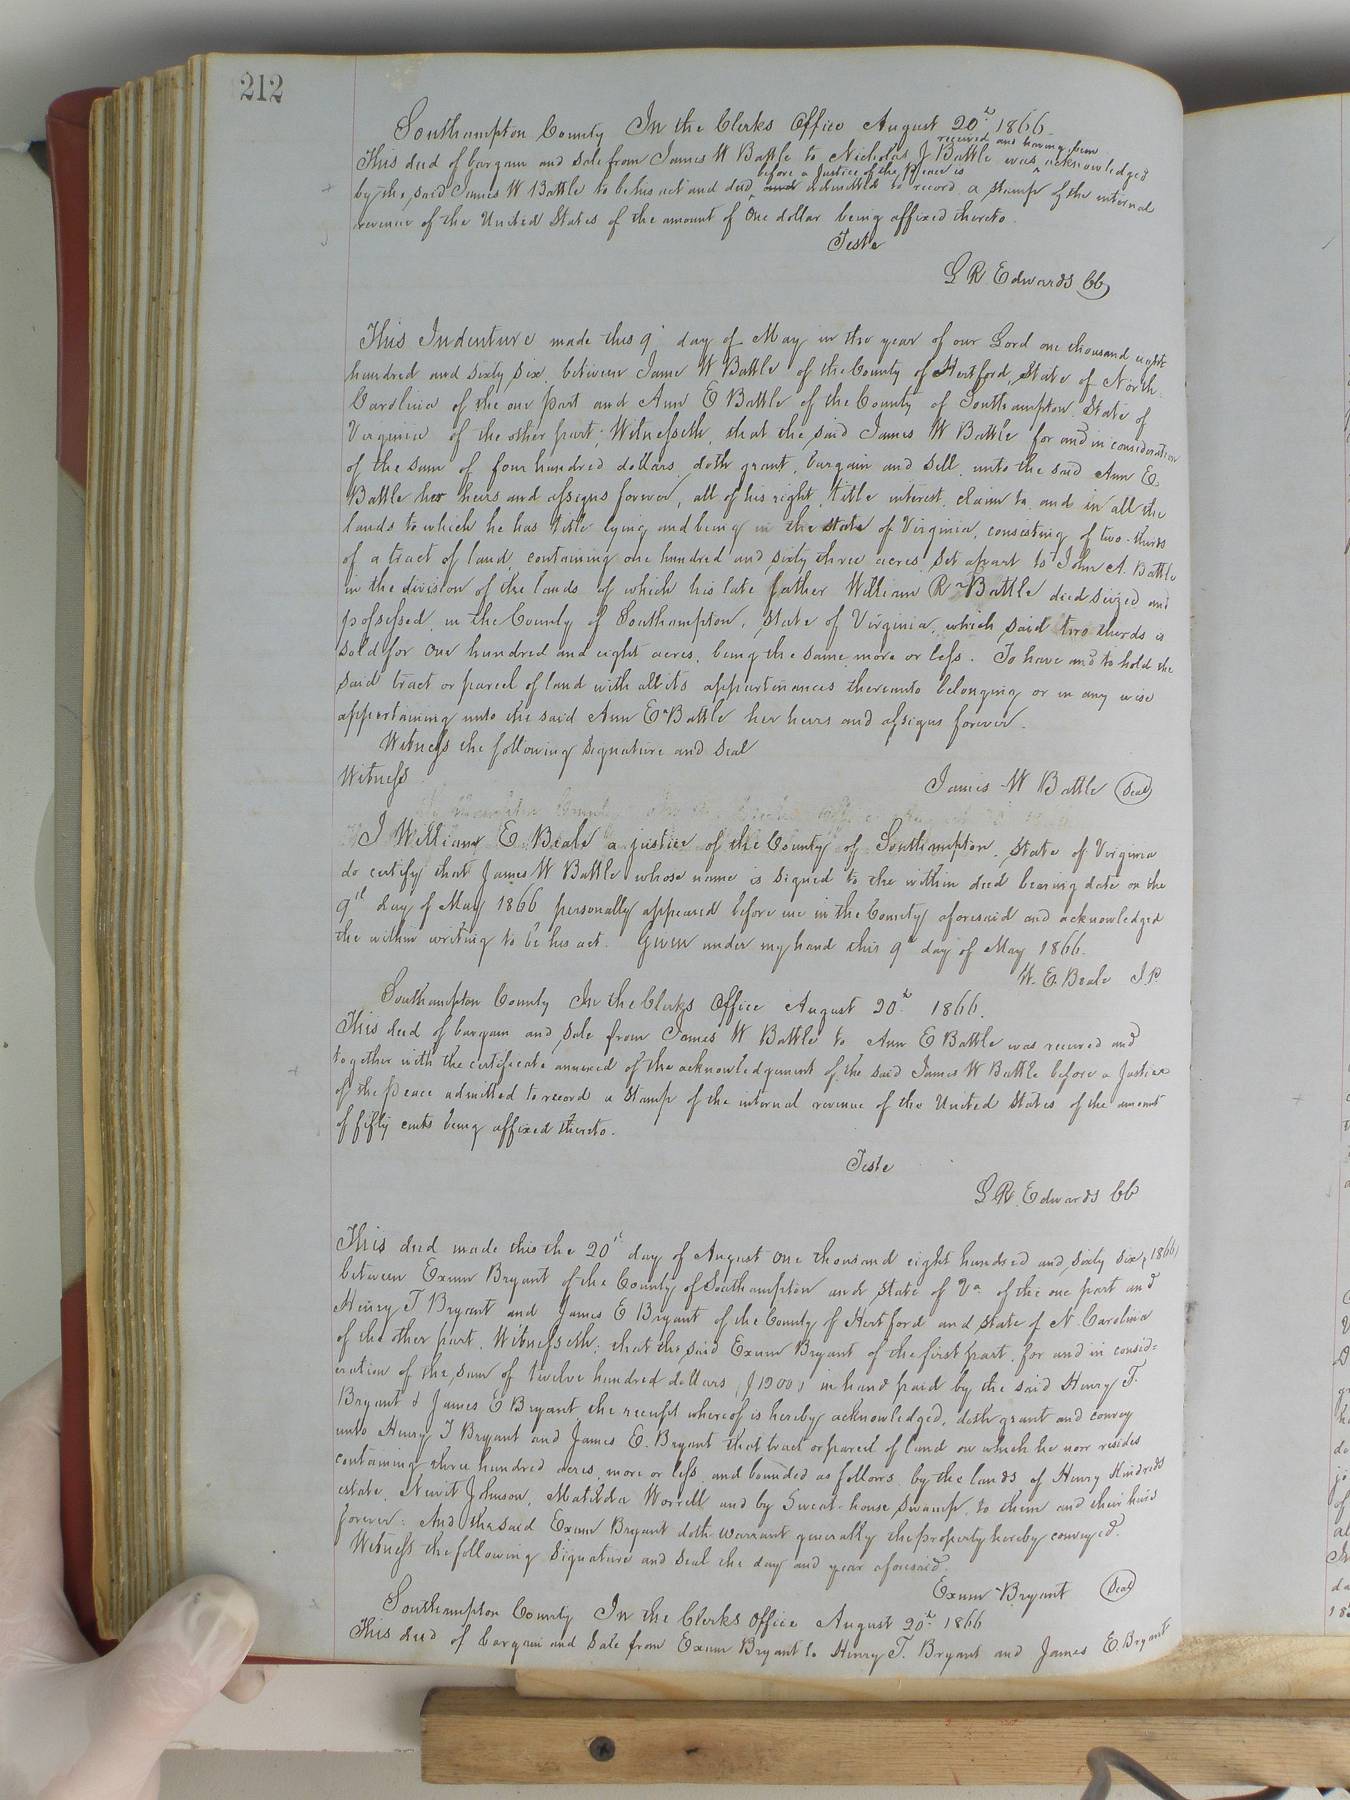 212
Southampton County In the Clerks Office August 20th 1866
received and having been
This deed of bargain and sale from James W Battle to Nicholas J Battle was acknowledged
before a Justice of the Peace is
by the said James W Battle to be his act and deed and admitted to record a stamp of the internal
revenue of the United States of the amount of One dollar being affixed thereto
Teste
L R Edwards CC
This Indenture made this 9th day of May in the year of our Lord one thousand eight
hundred and sixty six, between Jame W Battle of the County of Hertford, State of North
Carolina of the one part and Ann E Battle of the County of Southampton State of
Virginia of the other part, Witnesseth, that the said James W Battle for and in consideration
of the sum of four hundred dollars, doth grant, bargain and sell, unto the said Ann E.
Battle her heirs and assigns forever, all of his right, title interest, claim to and in all the
lands to which he has title lying and being in the state of Virginia, consisting of two-thirds
of a tract of land, containing one hundred and sixty three acres, set apart to John A. Battle
in the division of the lands of which his late father William R Battle died seized and
possessed, in the County of Southampton, State of Virginia, which said two thirds is
sold for One hundred and eight acres, being the same more or less. To have and to hold the
said tract or parcel of land with all its appartinances thereunto belonging or in any wise
appertaining unto the said Ann E Battle her heirs and assigns forever.
Witness the following signature and seal
Witness
James W Battle Seal
I William E. Beale a justice of the County of Southampton State of Virginia
do certify that James W Battle whose name is signed to the within deed bearing date on the
9th day of May 1866 personally appeared before me in the County aforesaid and acknowledged
the within writing to be his act. Given under my hand this 9th day of May 1866.
W. E. Beale J.P.
Southampton County In the Clerks Office August 20th 1866.
This deed of bargain and sale from James W Battle to Ann E Battle was received and
together with the certificate annexed of the acknowledgement of the said James W Battle before a Justice
of the Peace admitted to record a stamp of the internal revenue of the United States of the amount
of fifty cents being affixed thereto.
Teste
L R Edwards CC
This deed made this the 20th day of August One thousand eight hundred and sixty six, (1866)
between Exum Bryant of the County of Southampton and State of Va of the one part and
Henry T Bryant and James E Bryant of the County of Hertford and State of N Carolina
of the other part. Witnesseth; that the said Exum Bryant of the first part, for and in consid=
eration of the sum of twelve hundred dollars ($1200) in hand paid by the said Henry T.
Bryant & James E Bryant, the receipt whereof is hereby acknowledged, doth grant and convey
unto Henry T Bryant and James E. Bryant that tract or parcel of land on which he now resides
containing three hundred acres, more or less, and bounded as follows, by the lands of Henry Kindreds
estate, Newit Johnson, Matilda Worrell and by Sweat-house Swamp, to them and their heirs
forever. And the said Exum Bryant doth warrant generally the property hereby conveyed.
Witness the following signature and seal the day and year aforesaid.
Exum Bryant Seal
Southampton County In the Clerks Office August 20th 1866
This deed of bargain and sale from Exum Bryant to Henry T. Bryant and James E. Bryant